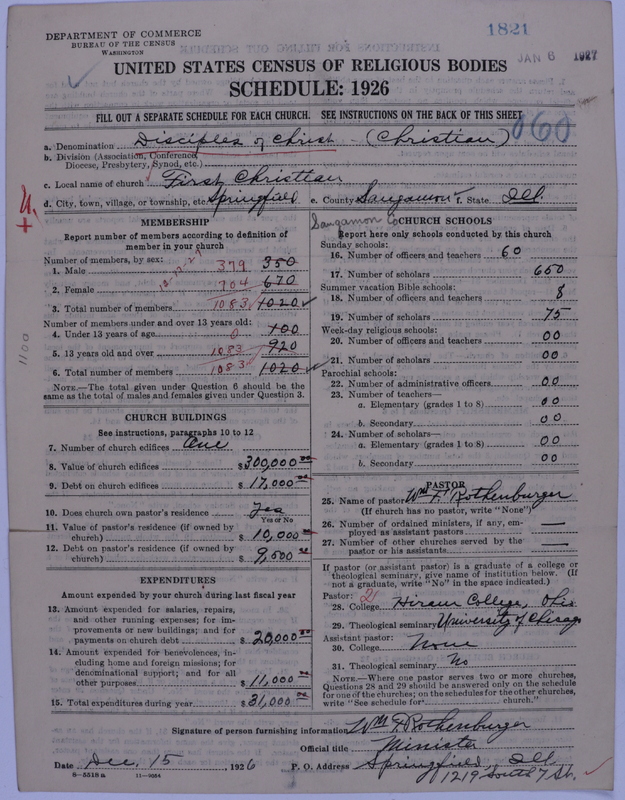 1821
DEPARTMENT OF COMMERCE
BUREAU OF THE CENSUS
WASHINGTON
JAN 6 1927
UNITED STATES CENSUS OF RELIGIOUS BODIES
SCHEDULE: 1926
FILL OUT A SEPARATE SCHEDULE FOR EACH CHURCH. SEE INSTRUCTIONS ON THE BACK OF THIS SHEET
060
a. Denomination Disciples of Christ (Christian)
b. Division (Association, Conference, Diocese, Presbytery, Synod, etc.)
c. Local name of church First Christian
d. City, town, village, or township, etc. Springfield e. County Sangamon f. State Ill
Sangamon Co
MEMBERSHIP
Report number of members according to definition of
member in your church
Number of members, by sex:
1. Male 379 350
2. Female 704 670
3. Total number of members 1083 1020
Number of members under and over 13 years old:
4. Under 13 years of age 0 100
5. 13 years old and over 1083 920
6. Total number of members 1083 1020
NOTE.—The total given under Question 6 should be the
same as the total of males and females given under Question 3.
1100
CHURCH BUILDINGS
See instructions, paragraphs 10 to 12
7. Number of church edifices One
8. Value of church edifices $300,000 00
9. Debt on church edifices $17,000 00
10. Does church own pastor's residence Yes
Yes or No
11. Value of pastor's residence (if owned by
church) $10,000 00
12. Debt on pastor's residence (if owned by
church) $9,500 00
EXPENDITURES
Amount expended by your church during last fiscal year
13. Amount expended for salaries, repairs,
and other running expenses; for im-
provements or new buildings; and for
payments on church debt $20,000 00
14. Amount expended for benevolences, in-
cluding home and foreign missions; for
denominational support; and for all
other purposes $11,000 00
15. Total expenditures during year $31,000 00
CHURCH SCHOOLS
Report here only schools conducted by this church
Sunday schools:
16. Number of officers and teachers 60
17. Number of scholars 650
Summer vacation Bible schools:
18. Number of officers and teachers 8
19. Number of scholars 75
Week-day religious schools:
20. Number of officers and teachers 00
21. Number of scholars 00
Parochial schools:
22. Number of administrative officers 00
23. Number of teachers—
a. Elementary (grades 1 to 8) 00
b. Secondary 00
24. Number of scholars—
a. Elementary (grades 1 to 8) 00
b. Secondary 00
PASTOR
25. Name of pastor Wm F. Rothenburger
(If church has no pastor, write "None")
26. Number of ordained ministers, if any, em-
ployed as assistant pastors —
27. Number of other churches served by the
pastor or his assistants —
If pastor (or assistant pastor) is a graduate of a college or
theological seminary, give name of institution below. (If
not a graduate, write "No" in the space indicated.)
Pastor: 2
28. College Hiram College, Ohio
29. Theological seminary University of Chicago
Assistant pastor:
30. College None
31. Theological seminary No
NOTE.—Where one pastor serves two or more churches,
Questions 28 and 29 should be answered only on the schedule
for one of the churches; on the schedules for the other churches,
write "See schedule for church."
Signature of person furnishing information Wm F Rothenburger
Official title Minister
Date Dec. 15, 1926 P. O. Address Springfield Ill
8—5518a 11—9054 1219 South 7 St.